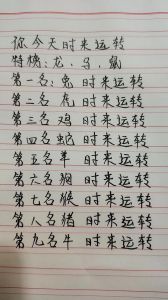 你今天时来运转
特榜：龙，马，鼠
第一名：兔 时来运转
第二名 虎 时来运转
第三名 鸡 时来运转
第四名蛇 时来运转
第五名羊 时来运转
第六名狗 时来运转
第七名猴 时来运转
第八名猪 时来运转
第九名牛 时来运转